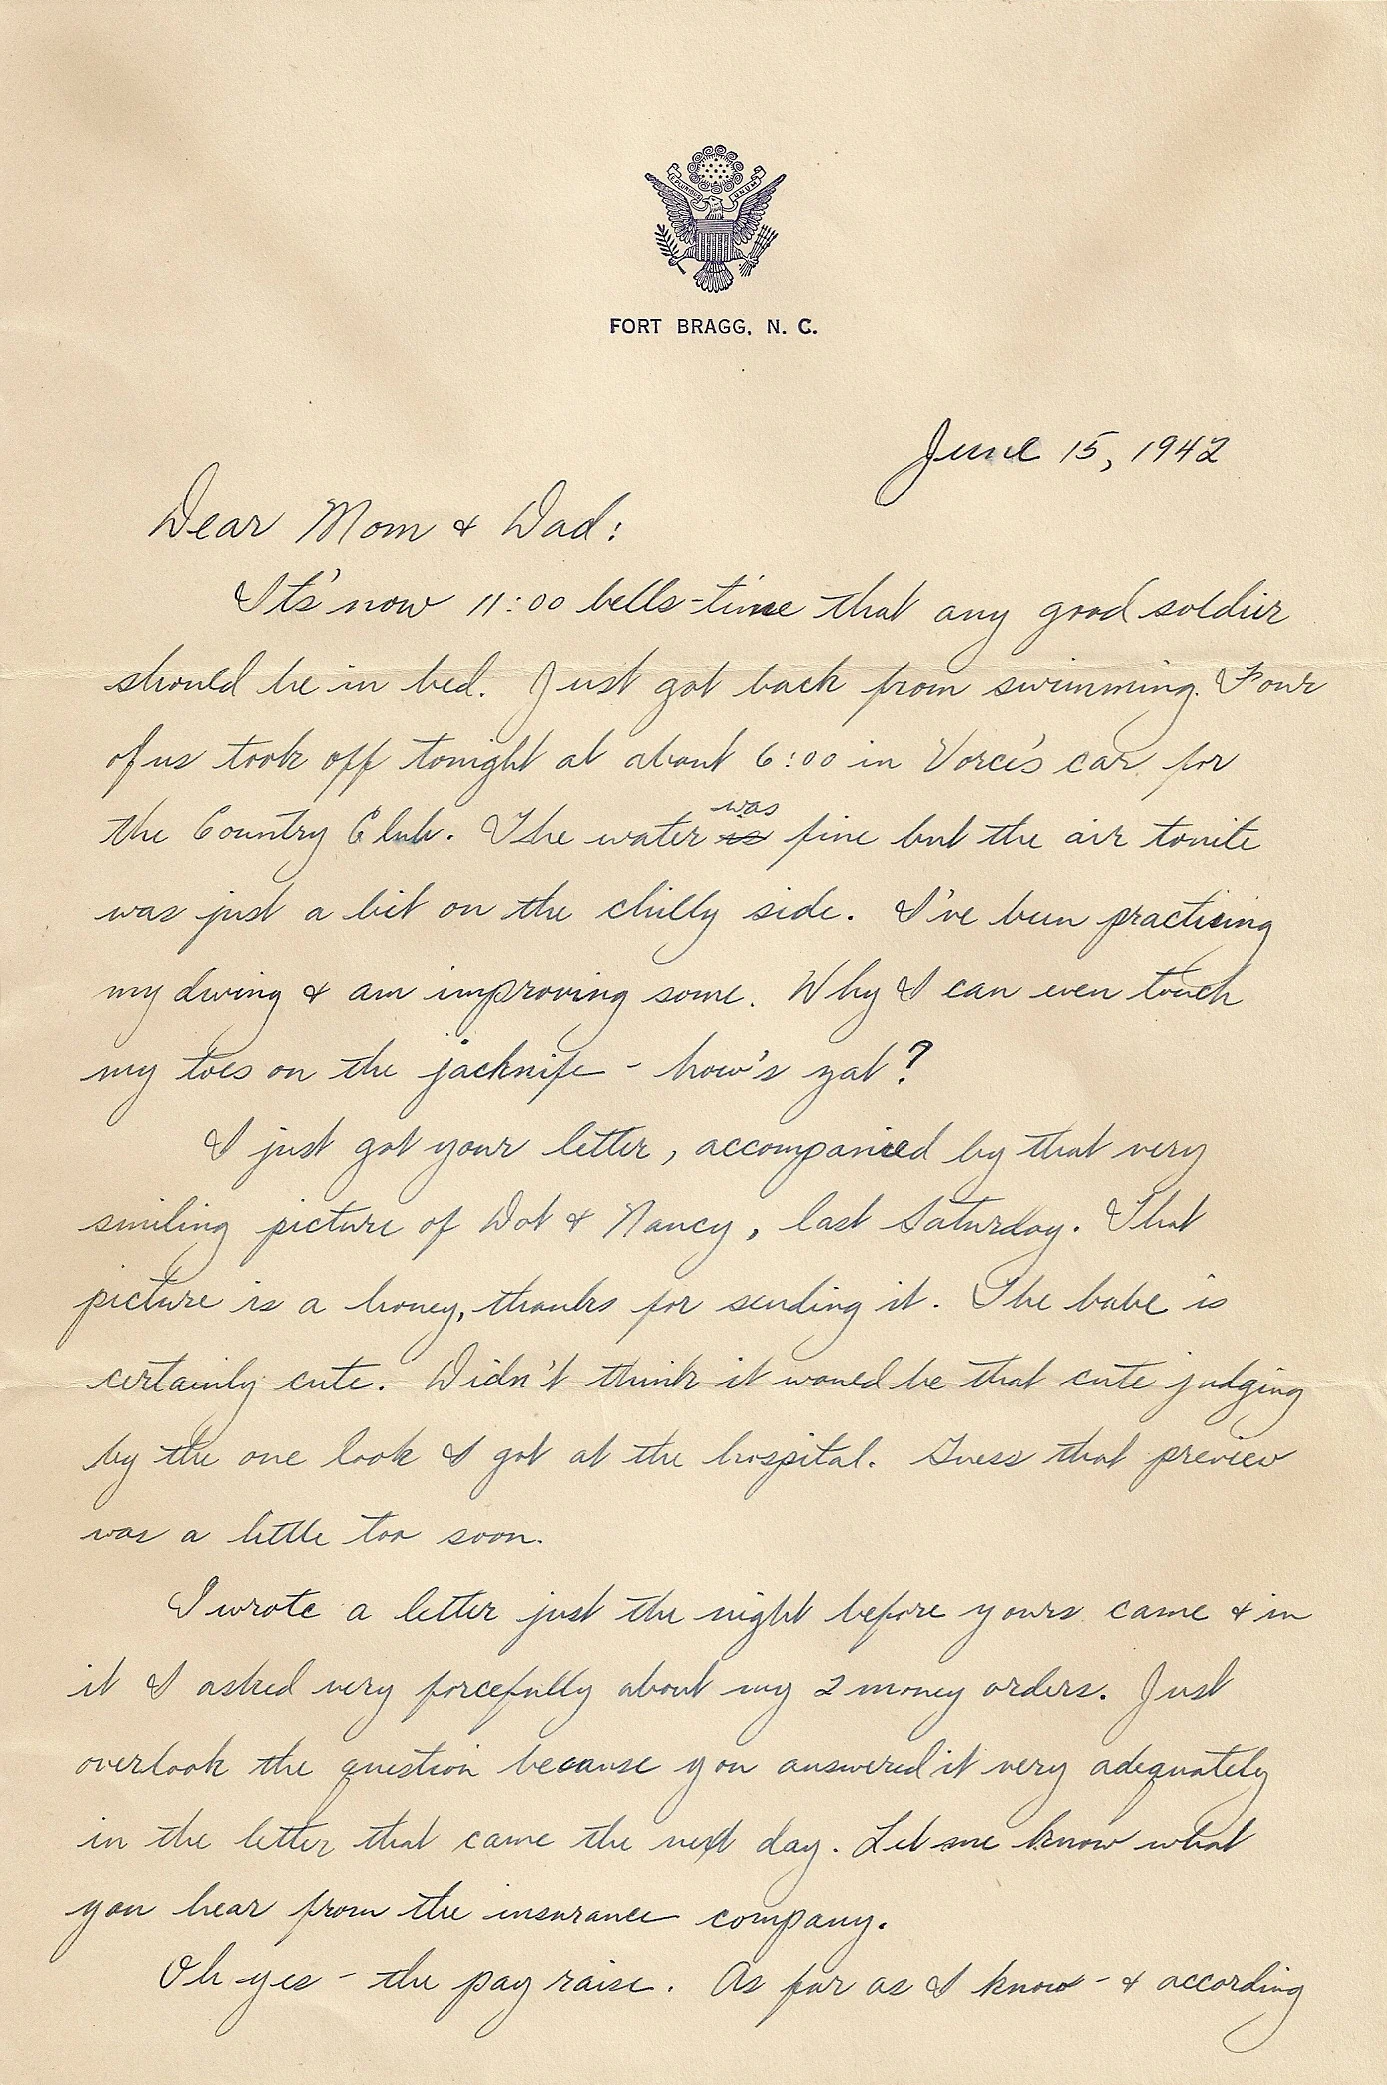 E PLURIBUS UNUM
FORT BRAGG, N. C.
June 15, 1942
Dear Mom & Dad:
Its' now 11:00 bells-time that any good soldier
should be in bed. Just got back from swimming. Four
of us took off tonight at about 6:00 in Vorce's car for
the Country Club. The water is was fine but the air tonite
was just a bit on the chilly side. I've been practicing
my diving & am improving some. Why I can even touch
my toes on the jacknife - how's zat?
I just got your letter, accompanied by that very
smiling picture of Dot & Nancy, last Saturday. That
picture is a honey, thanks for sending it. The babe is
certainly cute. Didn't think it would be that cute judging
by the one look I got at the hospital. Guess that preview
was a little too soon.
I wrote a letter just the night before yours came & in
it I asked very forcefully about my 2 money orders. Just
overlook the question because you answered it very adequately
in the letter that came the next day. Let me know what
you hear from the insurance company.
Oh yes - the pay raise. As far as I know - & according